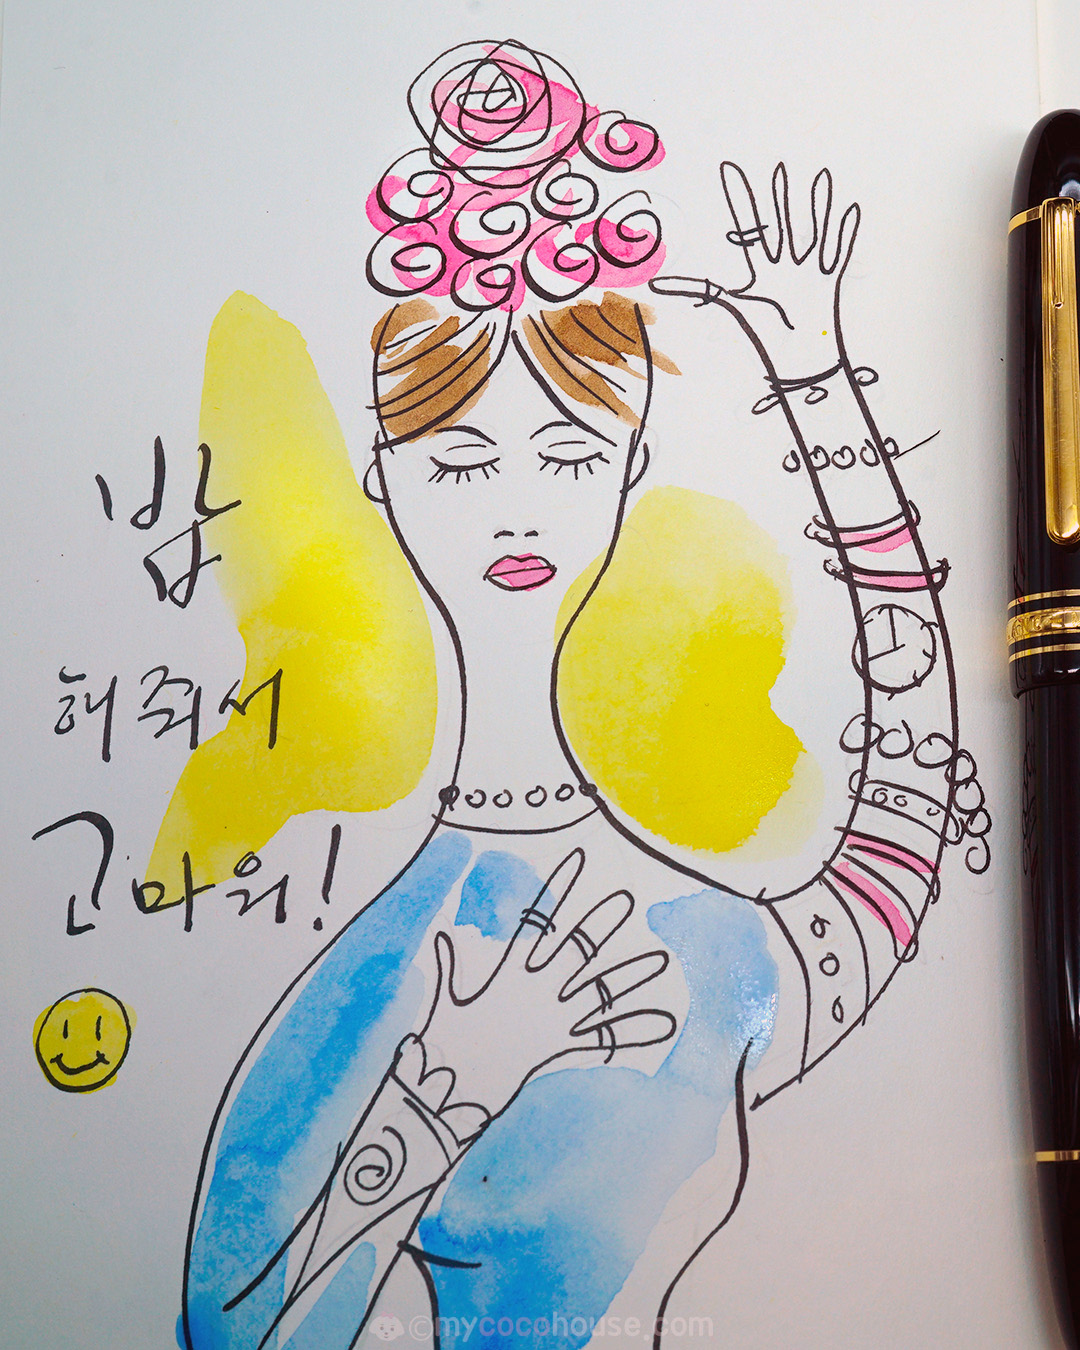 밥
해줘서
고마워!
©mycocohouse.com